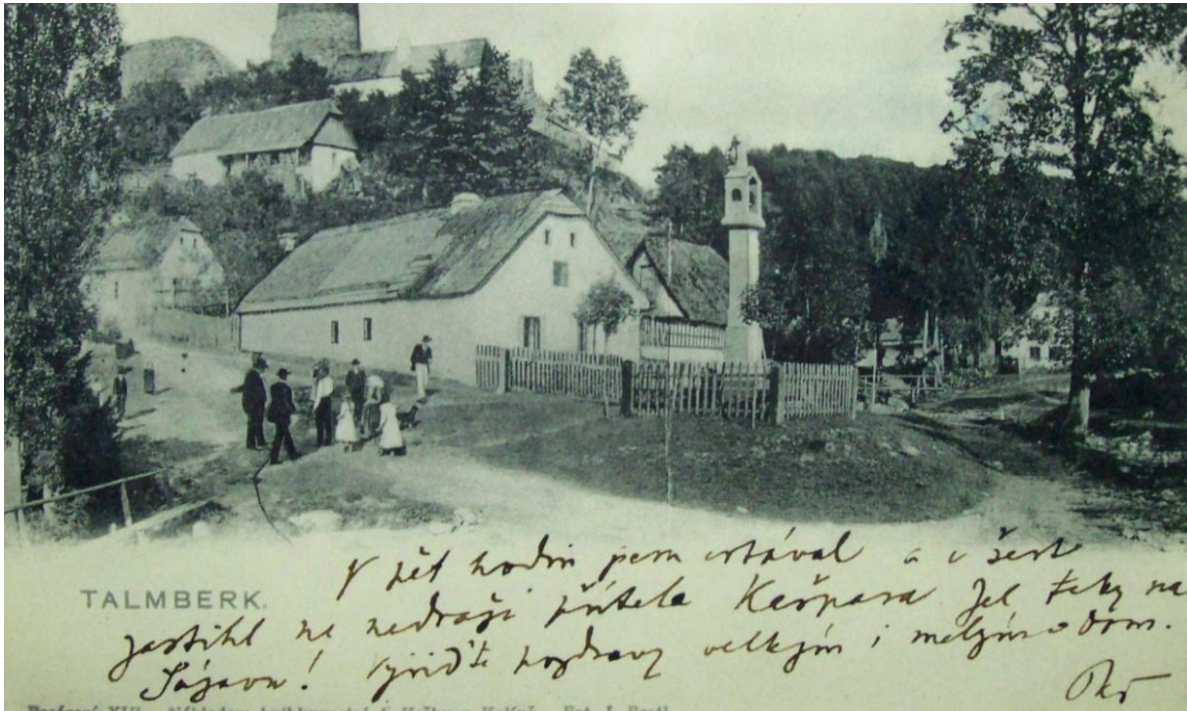 TALMBERK.
V pět hodin jsem vstával a v šest
zastihl na nádraží přítele Kašpara Jel taky na
Sázavu! Vyřiďte pozdravy velkejm i malejm